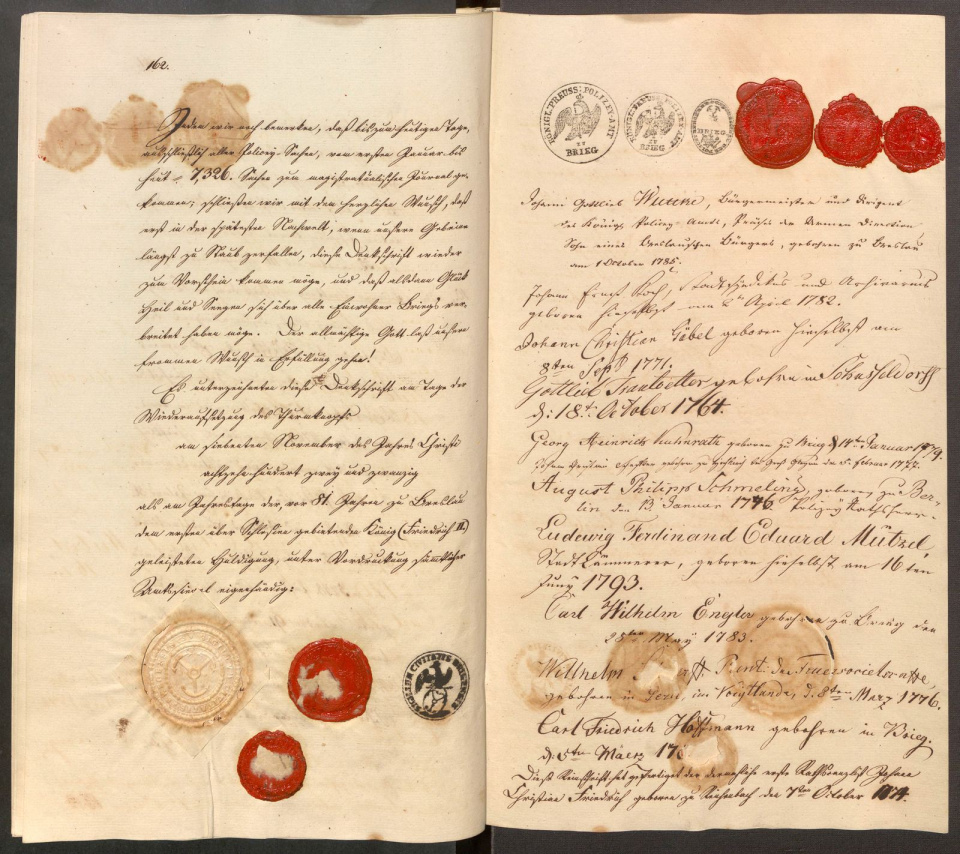 162.
Indem wir noch bemerken, daß bis zum heutigen Tage,
ausschließlich aller Polizey-Sachen, vom ersten Januar bis
heut - 7,326. Sachen zum magistratualischen Journal ge-
kommen; schließen wir mit dem herzlichen Wunsch, daß
erst in der spätesten Nachwelt, wenn unsere Gebeine
längst zu Staub zerfallen, diese Denkschrift wieder
zum Vorschein kommen möge, und daß alsdann Glück
Heil und Seegen sich über alle Einwohner Briegs ver-
breitet haben möge. Der allmächtige Gott laß unsern
frommen Wunsch in Erfüllung gehen!
Es unterzeichneten diese Denkschrift am Tage der
Wiederaufsetzung des Thurmknopfs
am siebenten November des Jahres Christi
achtzehnhundert zwey und zwanzig
als am Jahrestage der vor 81. Jahren zu Breslau
dem ersten über Schlesien gebietenden König (Friedrich II.)
geleisteten Huldigung, unter Vordruckung sämtlicher
Amtssiegel eigenhändig:
KÖNIGL. PREUSS. POLIZEY-AMT
ZU
BRIEG
KÖNIGL. PREUSS. POLIZEY-AMT
ZU
BRIEG
BRIEG
Johann Gottlieb Wuttke, Bürgermeister und Dirigent
des Königl. Polizey-Amts, Präses der Armen Direction,
Sohn eines Breslauischen Bürgers, geboren zu Breslau
am 1 October 1785.
Johann Ernst Koch, Stadtsyndikus und Archivarius
geboren hieselbst am 2ten April 1782.
Johann Christian Göbel geboren hieselbst am
8ten Sept 1771.
Gottlieb Trautvetter gebohren in
d: 18t October 1764.
Georg Heinrich Kuhnrath geboren zu Brieg d 14ten Januar 1779.
geboren zu bei Groß den 5. Februar 1777.
August Philipp Schmeling, geboren zu Ber-
lin den 13 Januar 1776. Polizey Rathsherr.
Ludewig Ferdinand Eduard Mützel,
Stadt Kämmerer, geboren hieselbst am 16ten
Juny 1793.
Carl Wilhelm Engler gebohren zu Brieg den
25ten May 1783.
Willhelm Rent: der Feuersocietäts
gebohren in im Voigtlande, d. 8ten Merz 1776.
Carl Friedrich Hoffmann gebohren in Brieg.
d: 5ten Maerz
Diese Reinschrift hat gefertiget der dermalige erste Rathskanzlist Johann
Christian Friedrich geboren zu Reichenbach den 7ten October 1774.